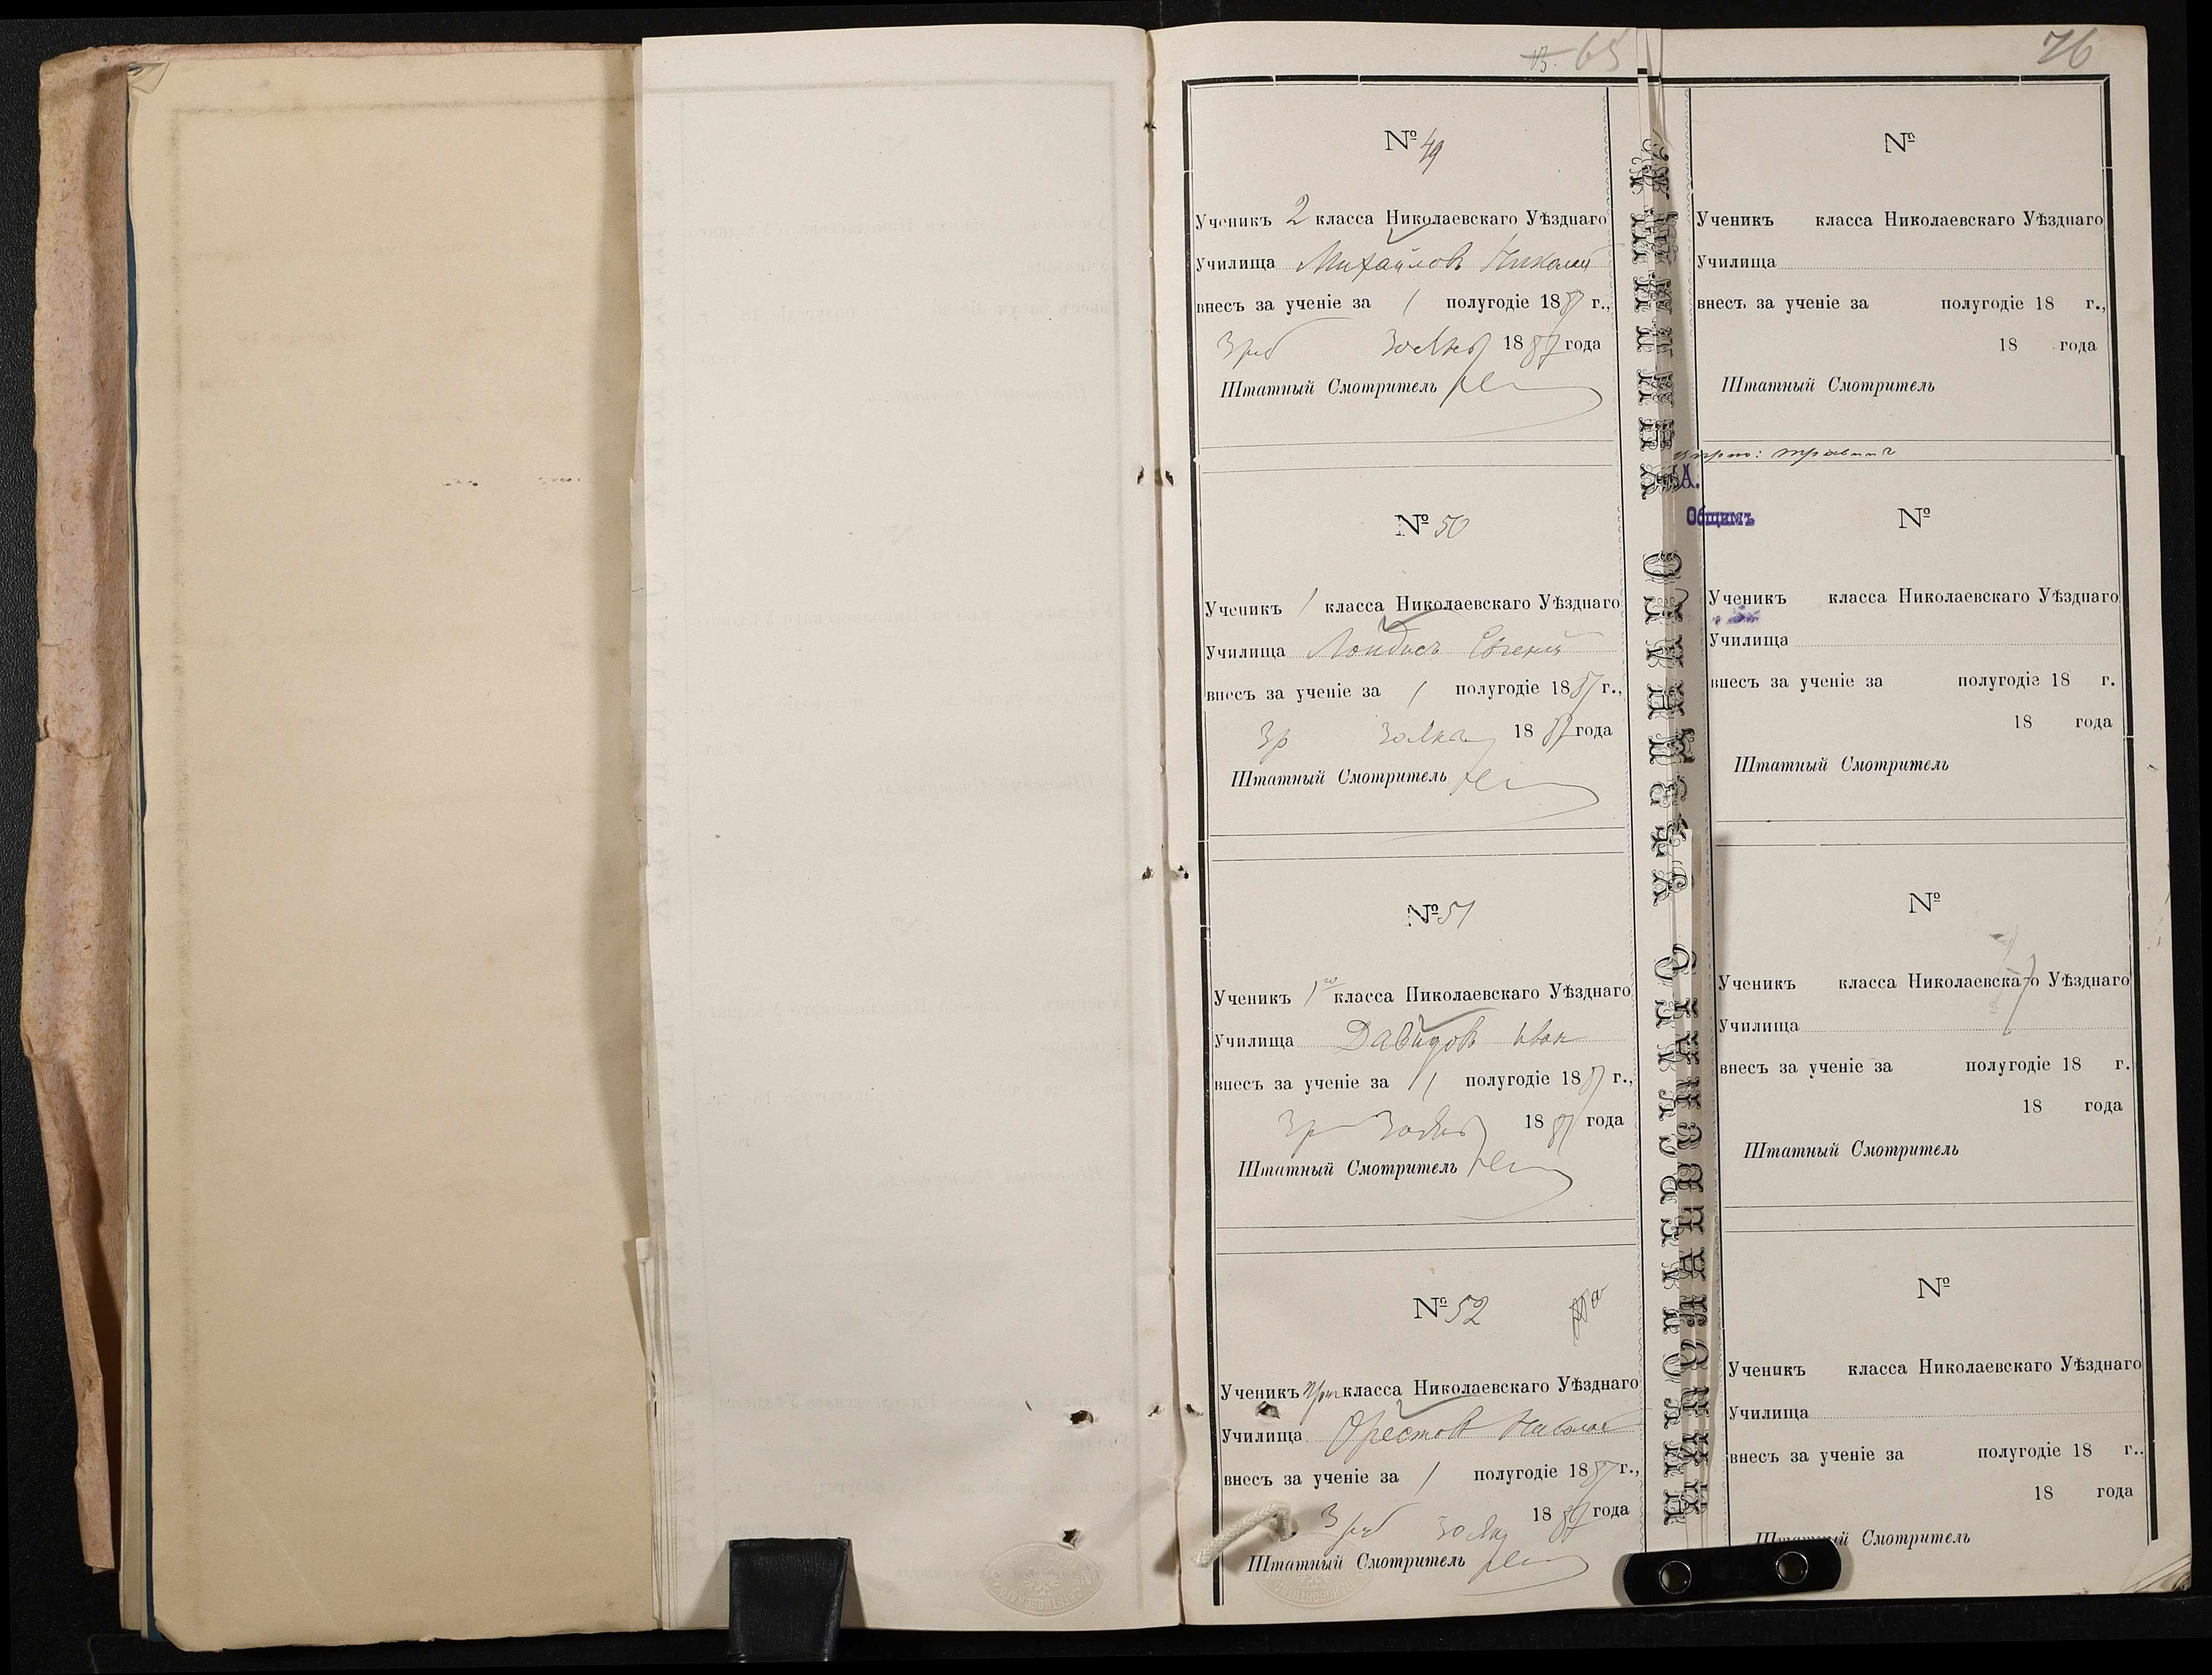 65
76
№ 49
Ученикъ 2 класса Николаевскаго Уѣзднаго
Училища Михайловъ Николай
внесъ за ученіе за 1 полугодіе 1887 г.,
3 руб 30 Янв 1887 года
Штатный Смотритель
№ 50
Ученикъ 1 класса Николаевскаго Уѣзднаго
Училища Евгеній
внесъ за ученіе за 1 полугодіе 1887 г.,
3 р 30 Янв 1887 года
Штатный Смотритель
№ 51
Ученикъ 1го класса Николаевскаго Уѣзднаго
Училища Давидовъ Иван
внесъ за ученіе за 1 полугодіе 1887 г.,
3 р 30 Янв 1887 года
Штатный Смотритель
№ 52
Ученикъ приг класса Николаевскаго Уѣзднаго
Училища Орестовъ
внесъ за ученіе за 1 полугодіе 1887 г.,
3 руб 30 Янв 1887 года
Штатный Смотритель
№
Ученикъ класса Николаевскаго Уѣзднаго
Училища
внесъ за ученіе за полугодіе 18 г.,
18 года
Штатный Смотритель
А.
Общимъ
№
Ученикъ класса Николаевскаго Уѣзднаго
Училища
внесъ за ученіе за полугодіе 18 г.
18 года
Штатный Смотритель
№
Ученикъ класса Николаевскаго Уѣзднаго
Училища
внесъ за ученіе за полугодіе 18 г.
18 года
Штатный Смотритель
№
Ученикъ класса Николаевскаго Уѣзднаго
Училища
внесъ за ученіе за полугодіе 18 г.,
18 года
Смотритель